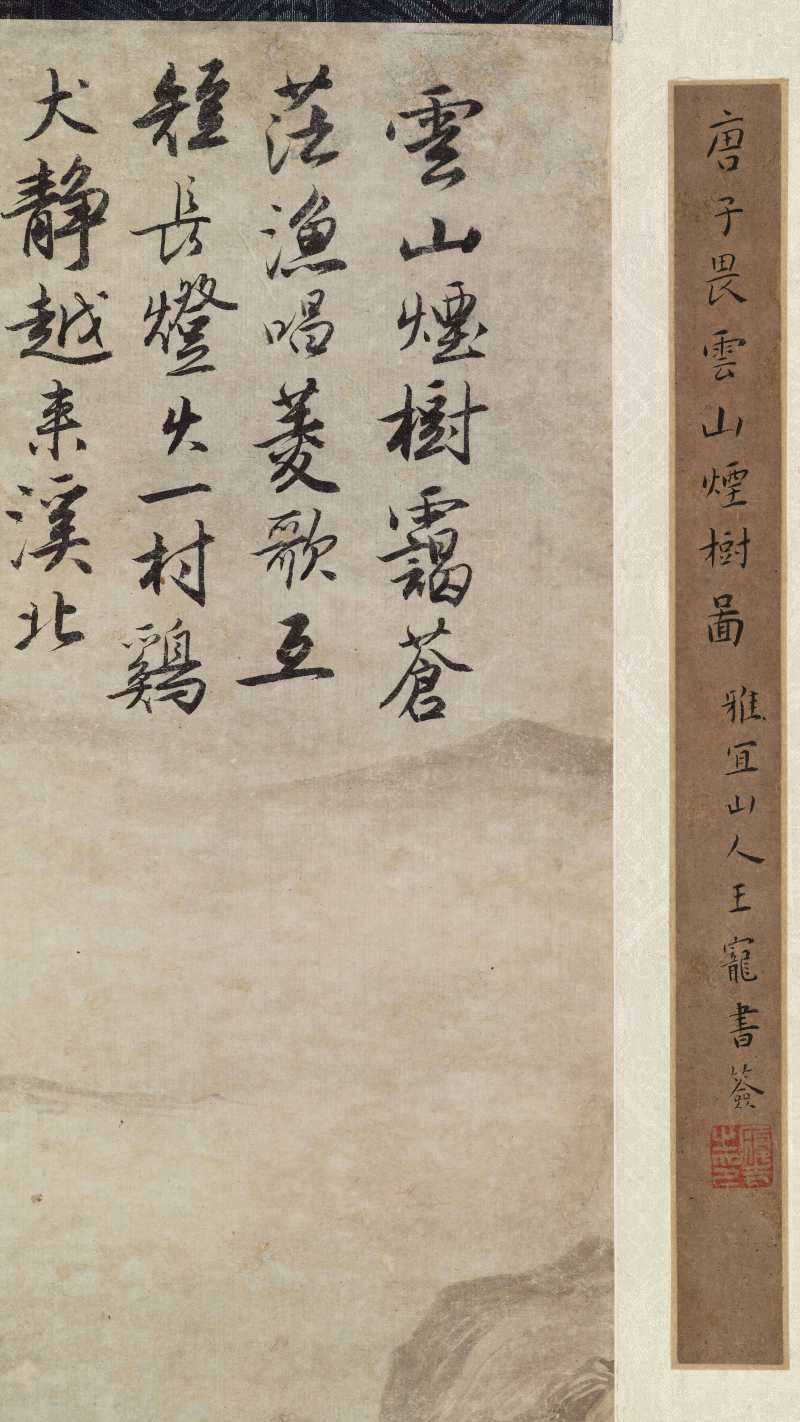 唐子畏雲山煙樹啚
雅宜山人王寵書簽
雲山煙樹靄蒼
茫漁唱菱歌互
短長燈火一村鷄
犬靜越來溪北